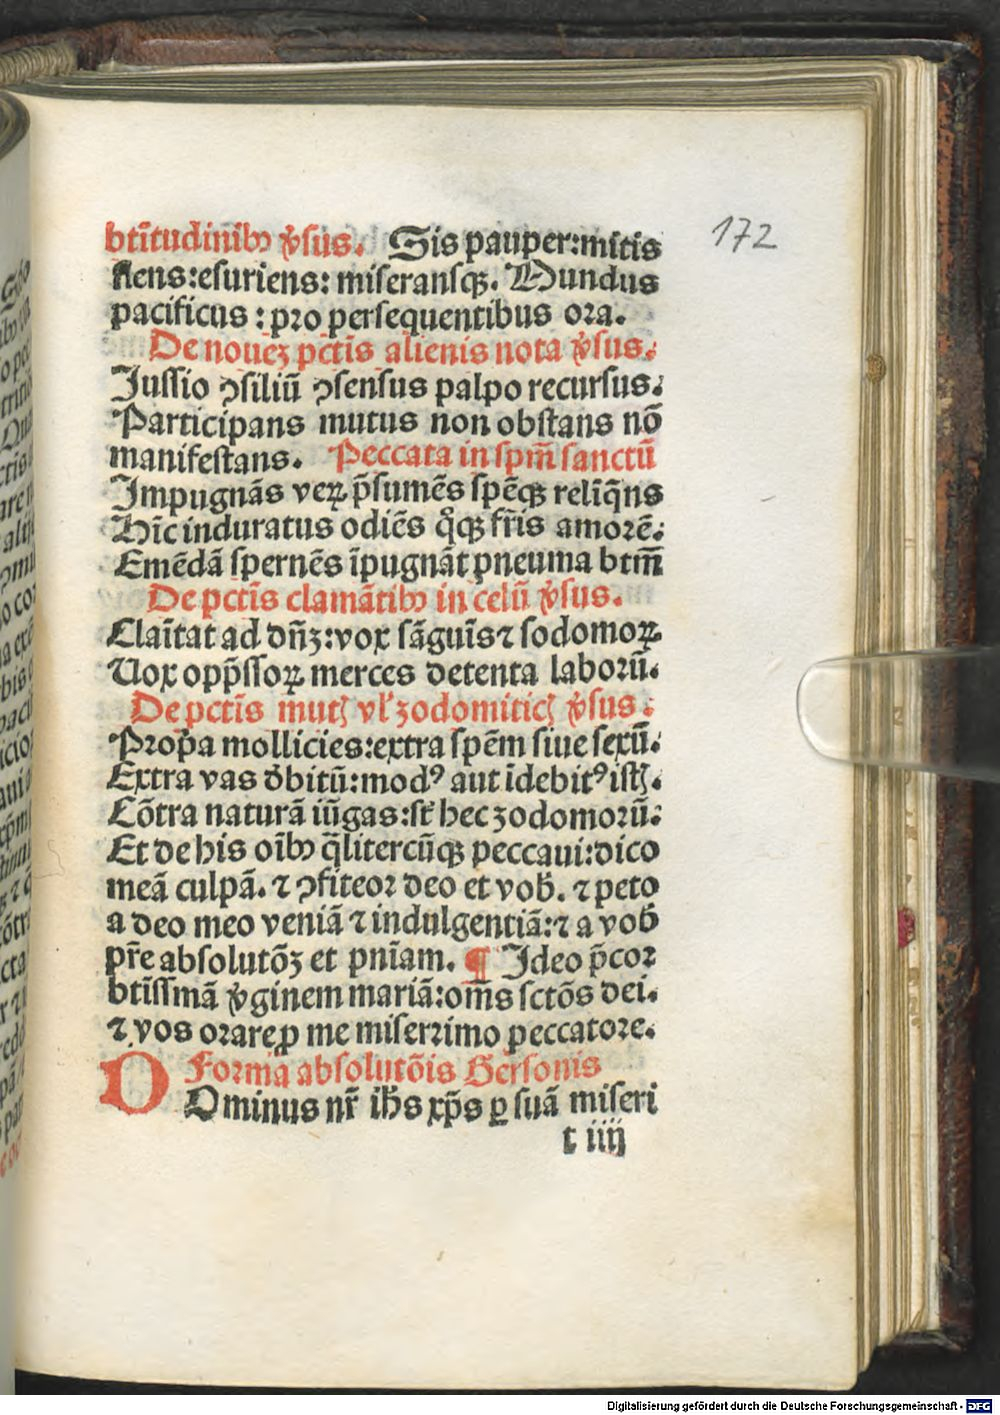 172
btītudinibꝫ v̓sus. Sis pauper:mitis
flens:esuriens: miseransqꝫ. Mundus
pacificus : pro persequentibus ora.
De nouēꝫ pctīs alienis nota v̓sus.
Jussio ꝯsiliū ꝯsensus palpo recursus.
Participans mutus non obstans nō
manifestans. Peccata in spm̄ sanctū
Impugnās veꝝ p̄sumēs spēqꝫ reliq̄ns
Hīc induratus odiēs qͥqꝫ fr̄is amorē.
Emēdā spernēs īpugnāt pneuma btm̄
De pctīs clamātibꝫ in celū v̓sus.
Claītat ad dn̄ꝫ:vox sāguīs ⁊ sodomoꝝ
Uox opp̄ssoꝝ merces detenta laborū.
De pctīs mutꝭ vl̓ zodomiticꝭ v̓sus.
Prop̄a mollicies:extra spēm siue sexū.
Extra vas d̓bitū:modꝰ aut īdebitꝰ istꝭ.
Cōtra naturā iūgas:st̄ hec zodomorū.
Et de his oībꝫ q̄litercūqꝫ peccaui:dico
meā culpā. ⁊ ꝯfiteor deo et vob̄. ⁊ peto
a deo meo veniā ⁊ indulgentiā:⁊ a vob̄
pr̄e absolutōꝫ et pnīam. ¶ Ideo p̄cor
btīssmā v̓ginem mariā:om̄s sctōs dei.
⁊ vos orare ꝓ me miserrimo peccatore.
Forma absolutōis Gersonis
DOminus nr̄ ih̄s xp̄s ꝑ suā miseri
t iiij
Digitalisierung gefördert durch die Deutsche Forschungsgemeinschaft - DFG